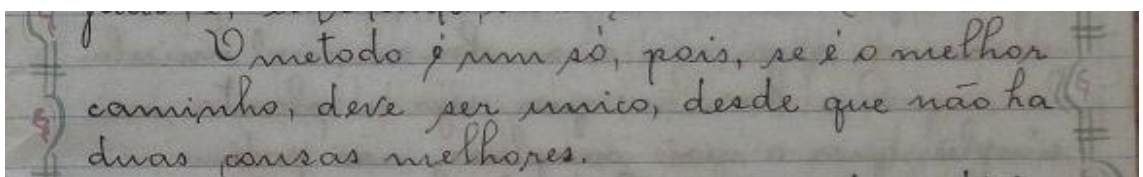 O metodo é um só, pois, se é o melhor
caminho, deve ser unico, desde que não ha
duas cousas melhores.